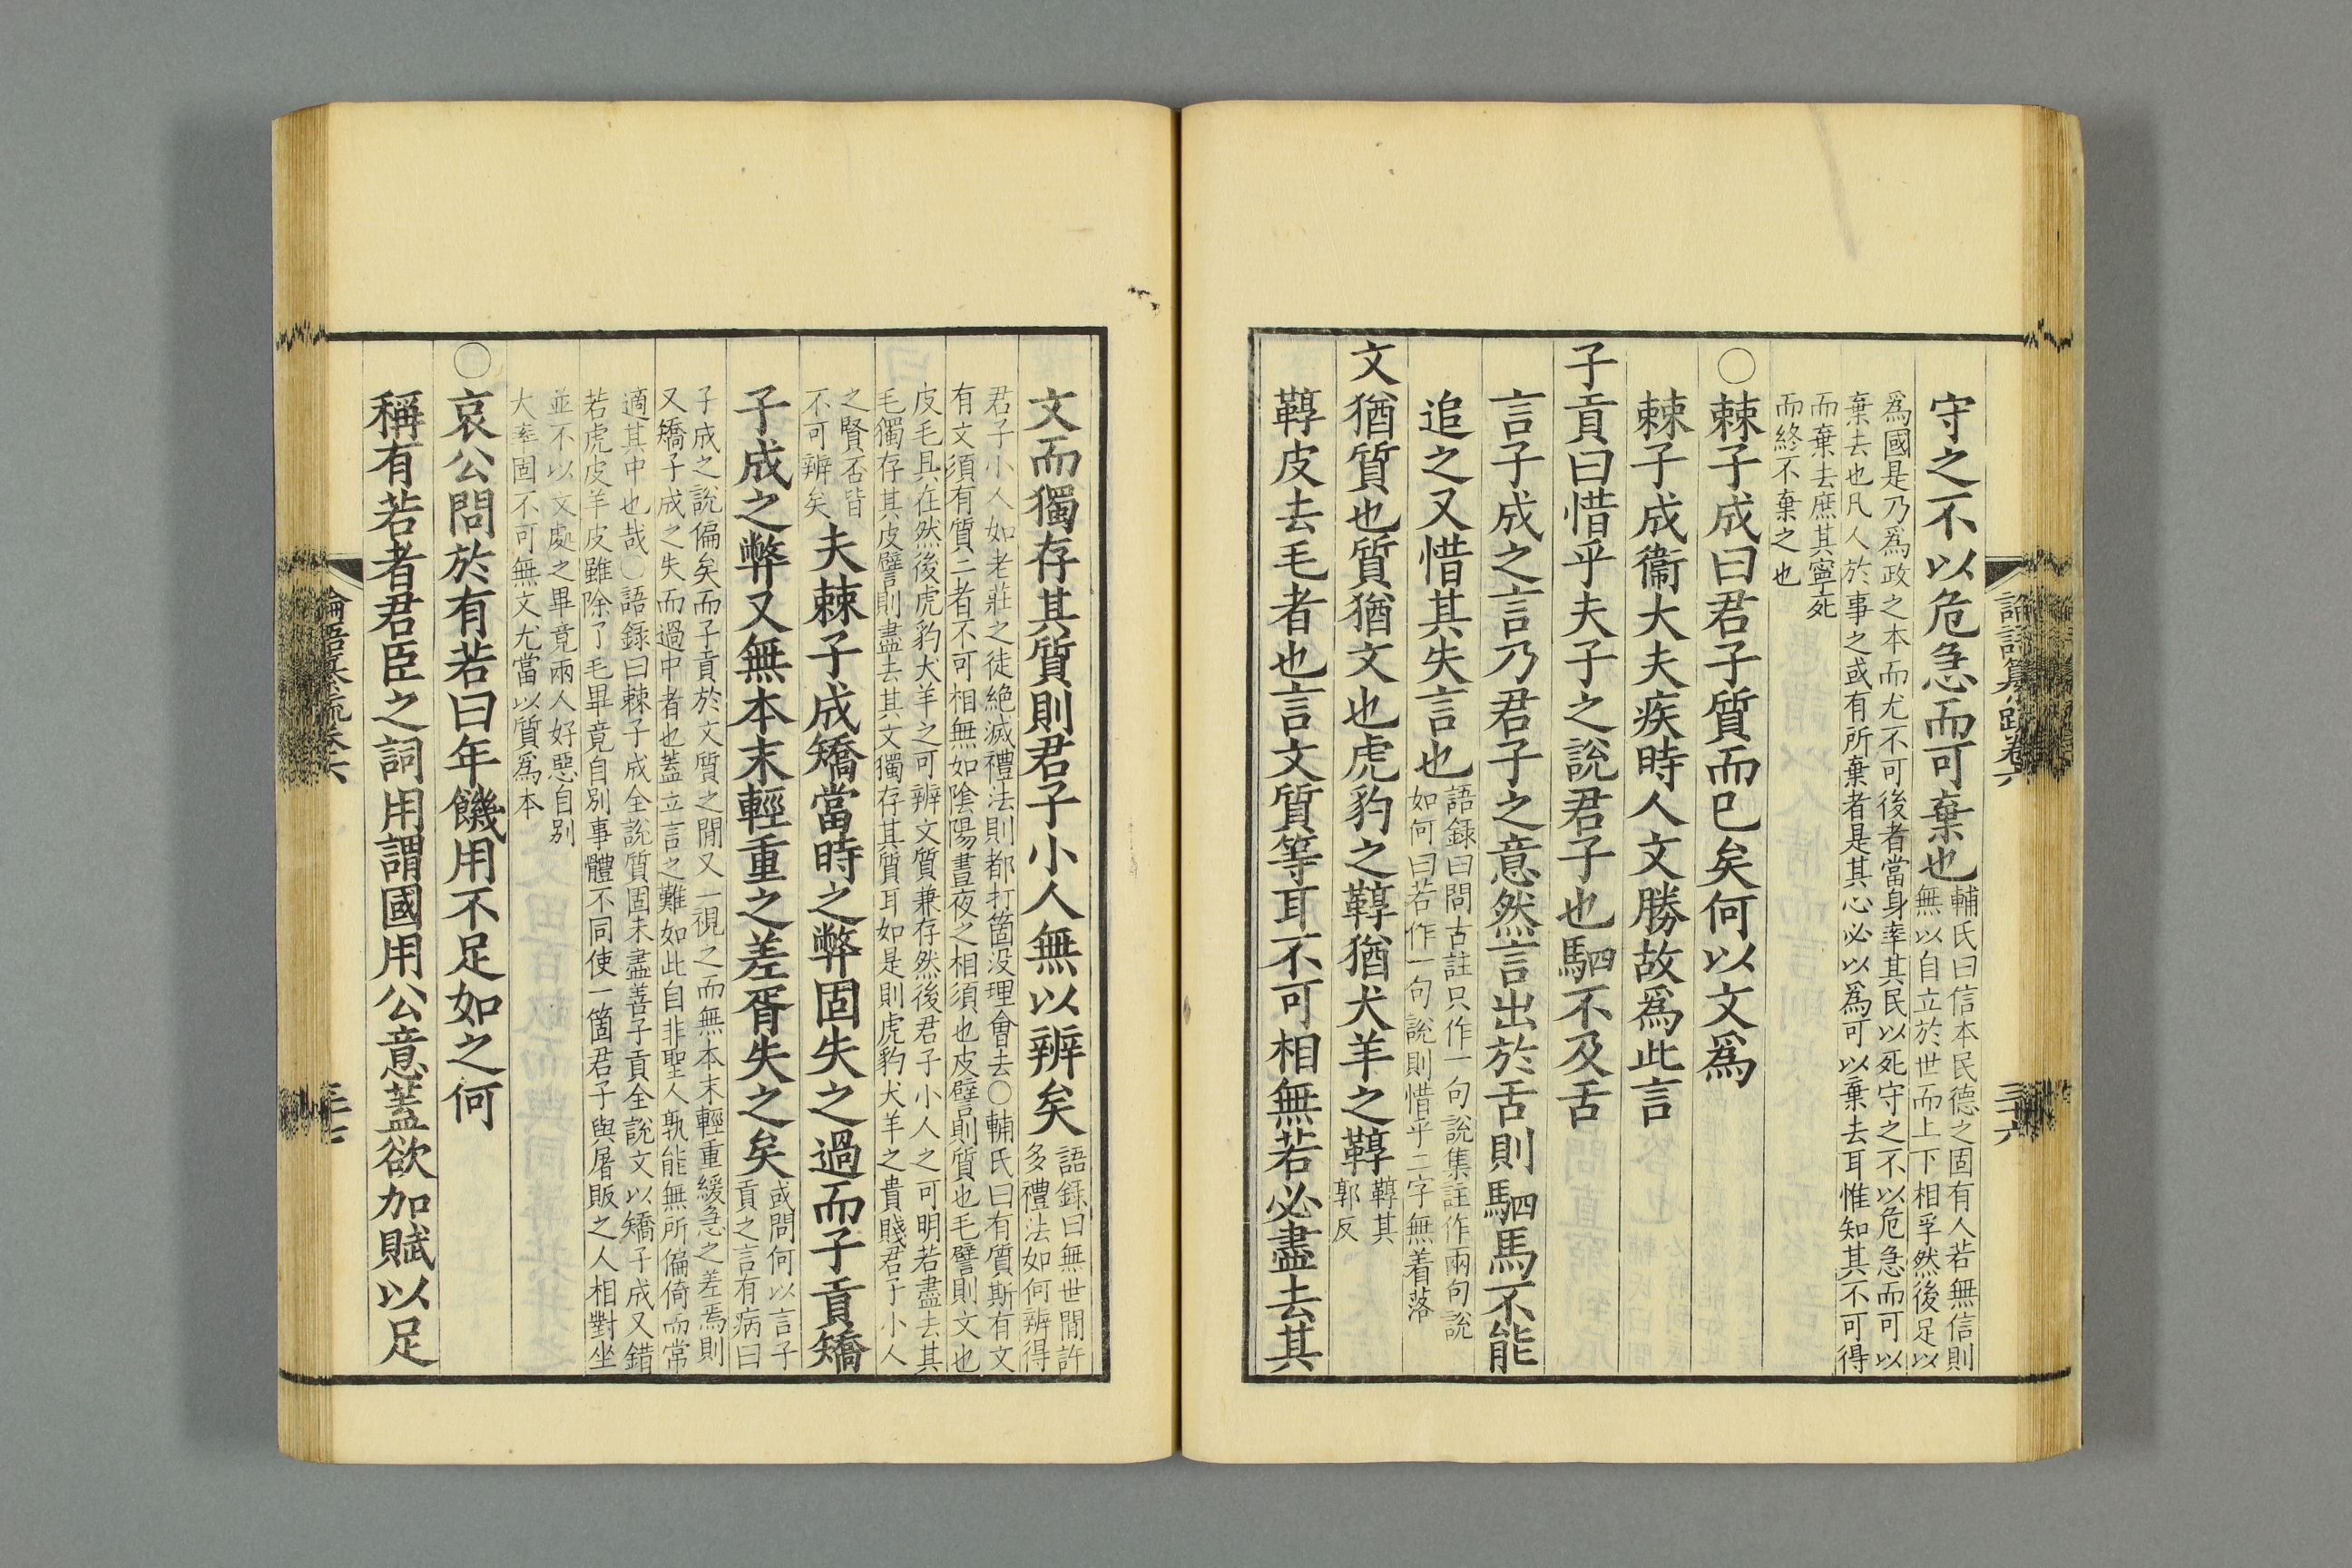 守之不以危急而可棄也輔氏曰信本民德之固有人若無信則
無以自立於世而上下相孚然後足以
爲國是乃爲政之本而尤不可後者當身率其民以死守之不以危急而可以
棄去也凡人於事之或有所棄者是其心必以爲可以棄去耳惟知其不可得
而棄去庶其寧死
而終不棄之也
〇棘子成曰君子質而已矣何以文爲
棘子成衞大夫疾時人文勝故爲此言
子貢曰惜乎夫子之說君子也駟不及舌
言子成之言乃君子之意然言出於舌則駟馬不能
追之又惜其失言也語録曰問古註只作一句說集註作兩句說
如何曰若作一句說則惜乎二字無着落
文猶質也質猶文也虎豹之鞹猶犬羊之鞹鞹其
郭反
鞹皮去毛者也言文質等耳不可相無若必盡去其
論語纂疏卷六
三十六
文而獨存其質則君子小人無以辨矣語録曰無世間許
多禮法如何辨得
君子小人如老莊之徒絶滅禮法則都打箇没理會去〇輔氏曰有質斯有文
有文須有質二者不可相無如陰陽晝夜之相須也皮譬則質也毛譬則文也
皮毛具在然後虎豹犬羊之可辨文質兼存然後君子小人之可明若盡去其
毛獨存其皮譬則盡去其文獨存其質耳如是則虎豹犬羊之貴賤君子小人
之賢否皆
不可辨矣夫棘子成矯當時之弊固失之過而子貢矯
子成之弊又無本末輕重之差胥失之矣或問何以言子
貢之言有病曰
子成之說偏矣而子貢於文質之間又一視之而無本末輕重緩急之差焉則
又矯子成之失而過中者也蓋立言之難如此自非聖人孰能無所偏倚而常
適其中也哉〇語録曰棘子成全說質固未盡善子貢全說文以矯子成又錯
若虎皮羊皮雖除了毛畢竟自別事體不同使一箇君子與屠販之人相對坐
並不以文處之畢竟兩人好惡自別
大率固不可無文尤當以質爲本
〇哀公問於有若曰年饑用不足如之何
稱有若者君臣之詞用謂國用公意蓋欲加賦以足
論語纂疏卷六
三十七